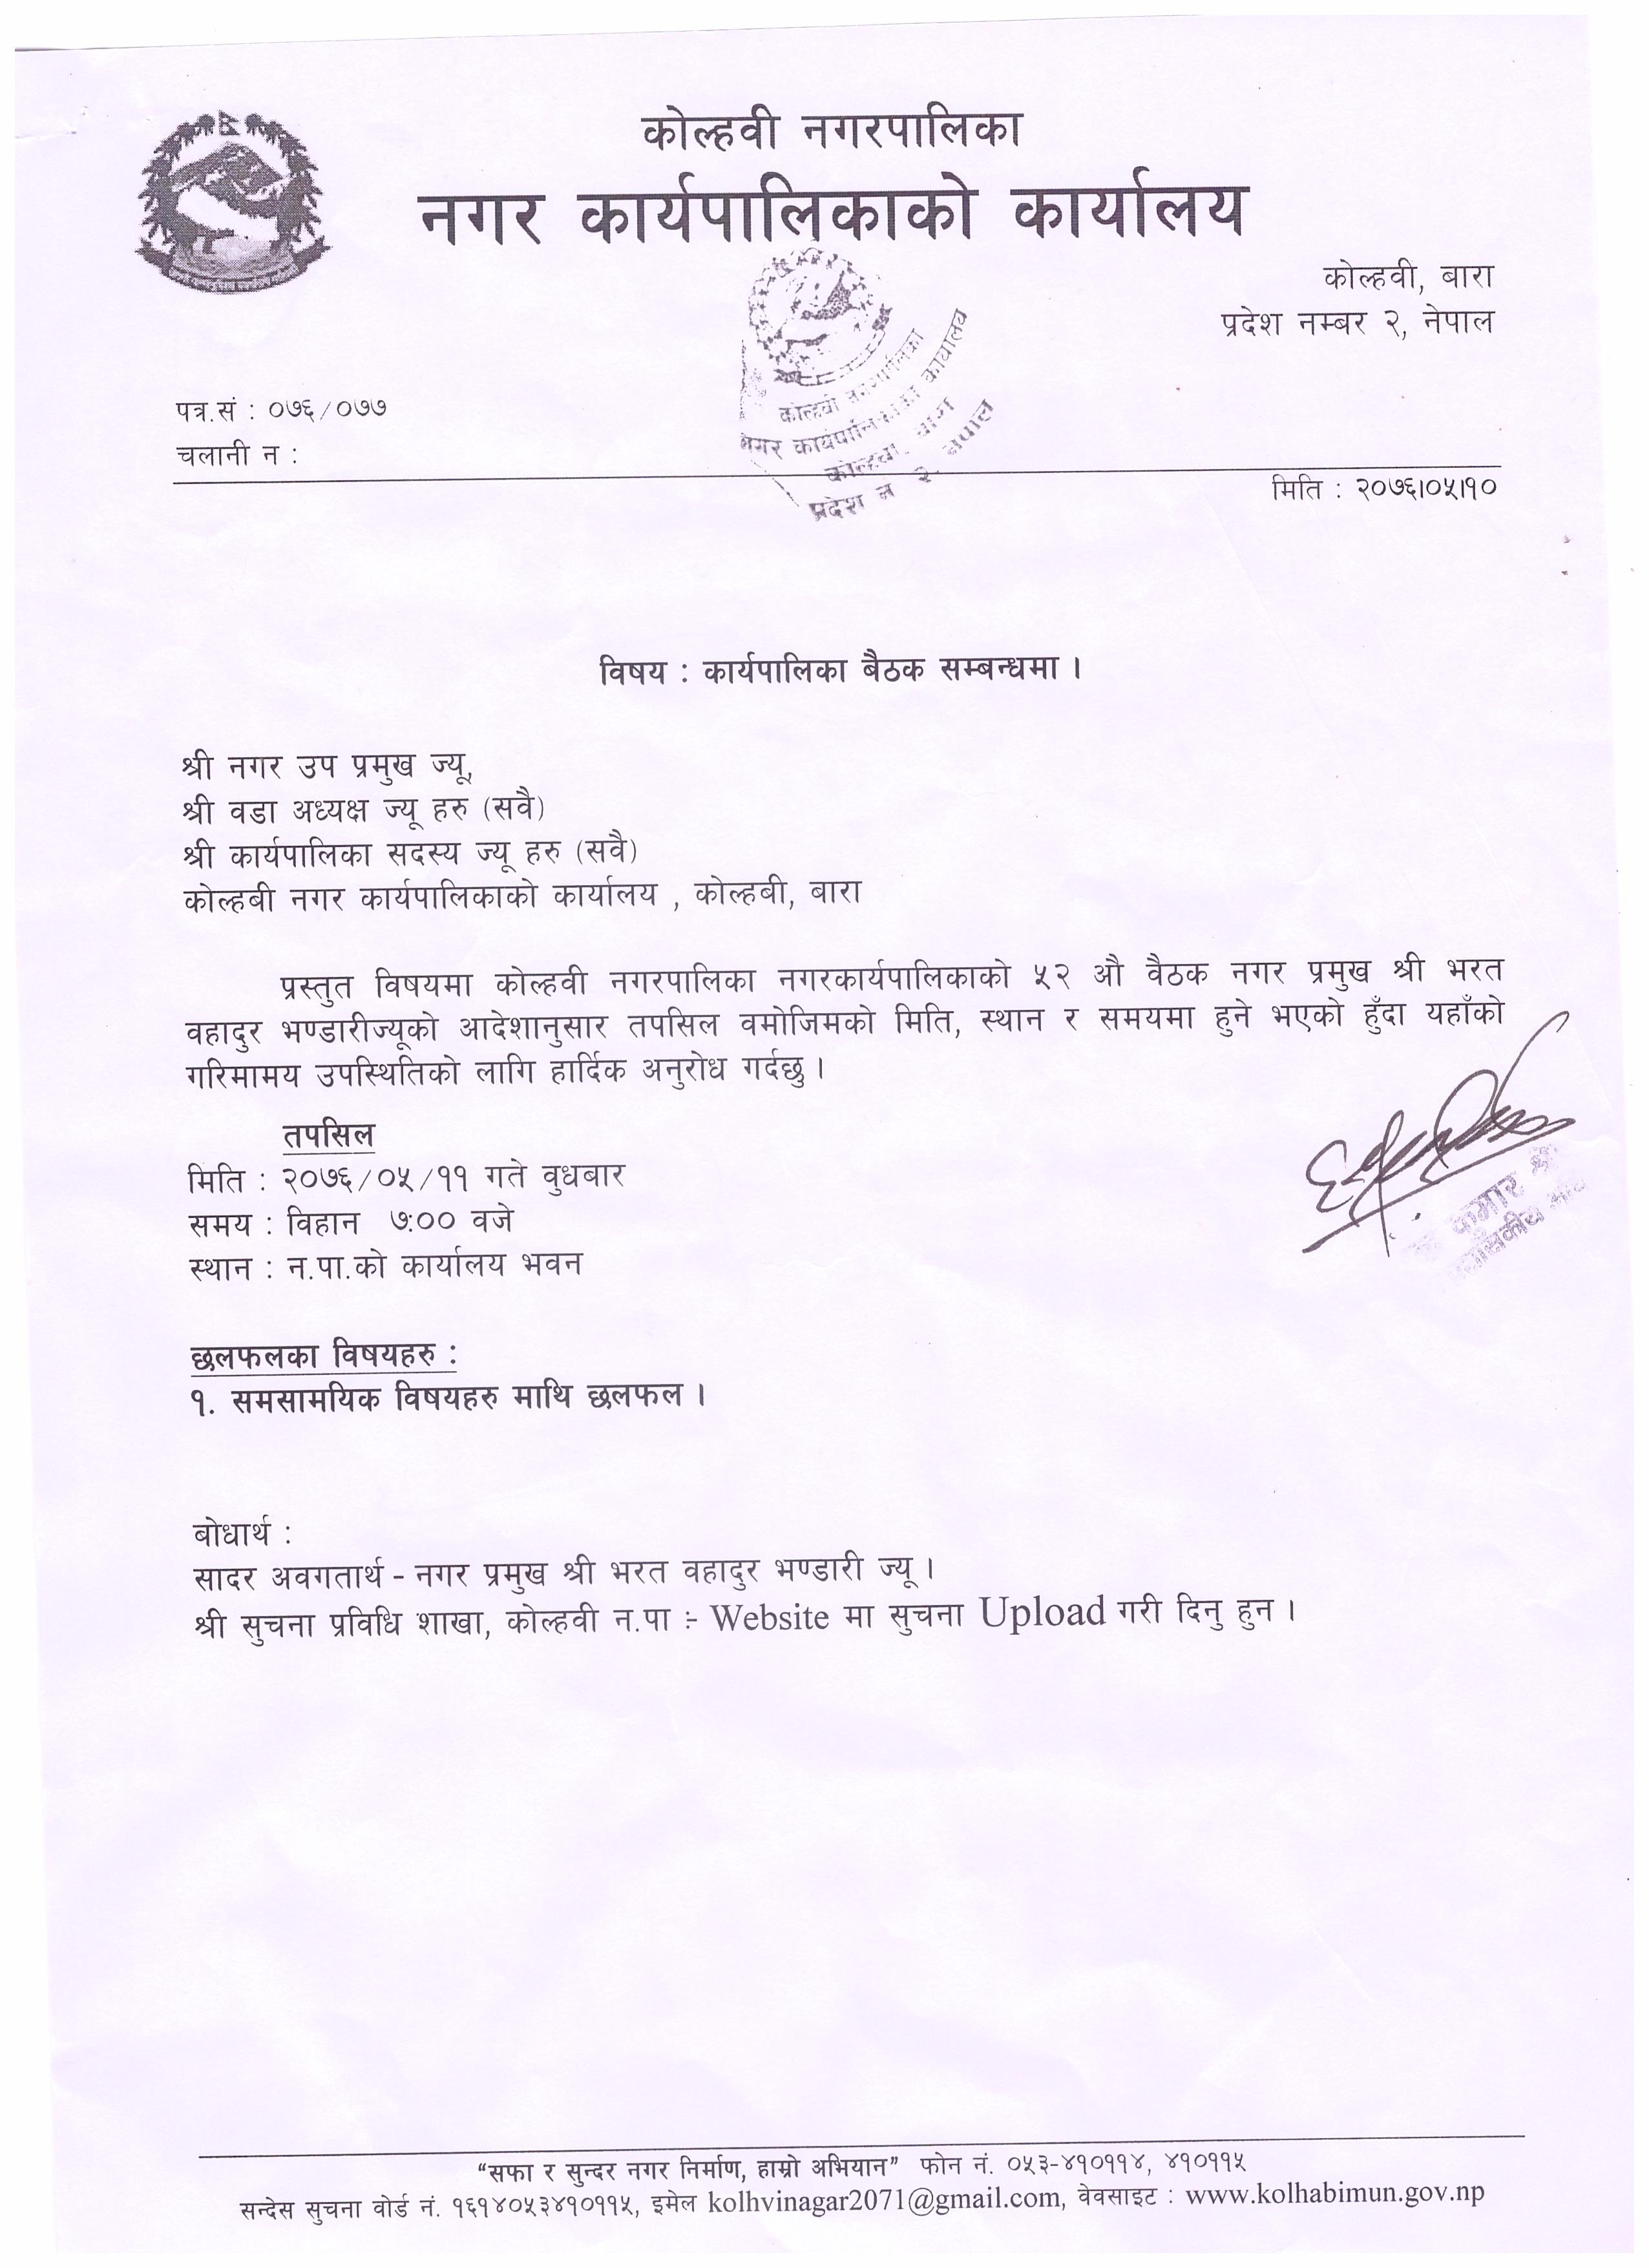 कोल्हवी नगरपालिका
नगर कार्यपालिकाको कार्यालय
कोल्हवी, बारा
प्रदेश नम्बर २, नेपाल
पत्र.सं : ०७६/०७७
चलानी न :
कोल्हवी नगरपालिका
नगर कार्यपालिकाको कार्यालय
कोल्हवी, बारा
प्रदेश नं २, नेपाल
मिति : २०७६।०५।१०
विषय : कार्यपालिका बैठक सम्बन्धमा ।
श्री नगर उप प्रमुख ज्यू,
श्री वडा अध्यक्ष ज्यू हरु (सवै)
श्री कार्यपालिका सदस्य ज्यू हरु (सवै)
कोल्हबी नगर कार्यपालिकाको कार्यालय , कोल्हबी, बारा
प्रस्तुत विषयमा कोल्हवी नगरपालिका नगरकार्यपालिकाको ५२ औ वैठक नगर प्रमुख श्री भरत
वहादुर भण्डारीज्यूको आदेशानुसार तपसिल वमोजिमको मिति, स्थान र समयमा हुने भएको हुँदा यहाँको
गरिमामय उपस्थितिको लागि हार्दिक अनुरोध गर्दछु ।
तपसिल
मिति : २०७६/०५/११ गते वुधबार
समय : विहान ७:०० वजे
स्थान : न.पा.को कार्यालय भवन
कुमार
छलफलका विषयहरु :
१. समसामयिक विषयहरु माथि छलफल ।
बोधार्थ :
सादर अवगतार्थ - नगर प्रमुख श्री भरत वहादुर भण्डारी ज्यू ।
श्री सुचना प्रविधि शाखा, कोल्हवी न.पा :- Website मा सुचना Upload गरी दिनु हुन ।
“सफा र सुन्दर नगर निर्माण, हाम्रो अभियान” फोन नं. ०५३-४१०११४, ४१०११५
सन्देस सुचना वोर्ड नं. १६१४०५३४१०११५, इमेल kolhvinagar2071@gmail.com, वेवसाइट : www.kolhabimun.gov.np